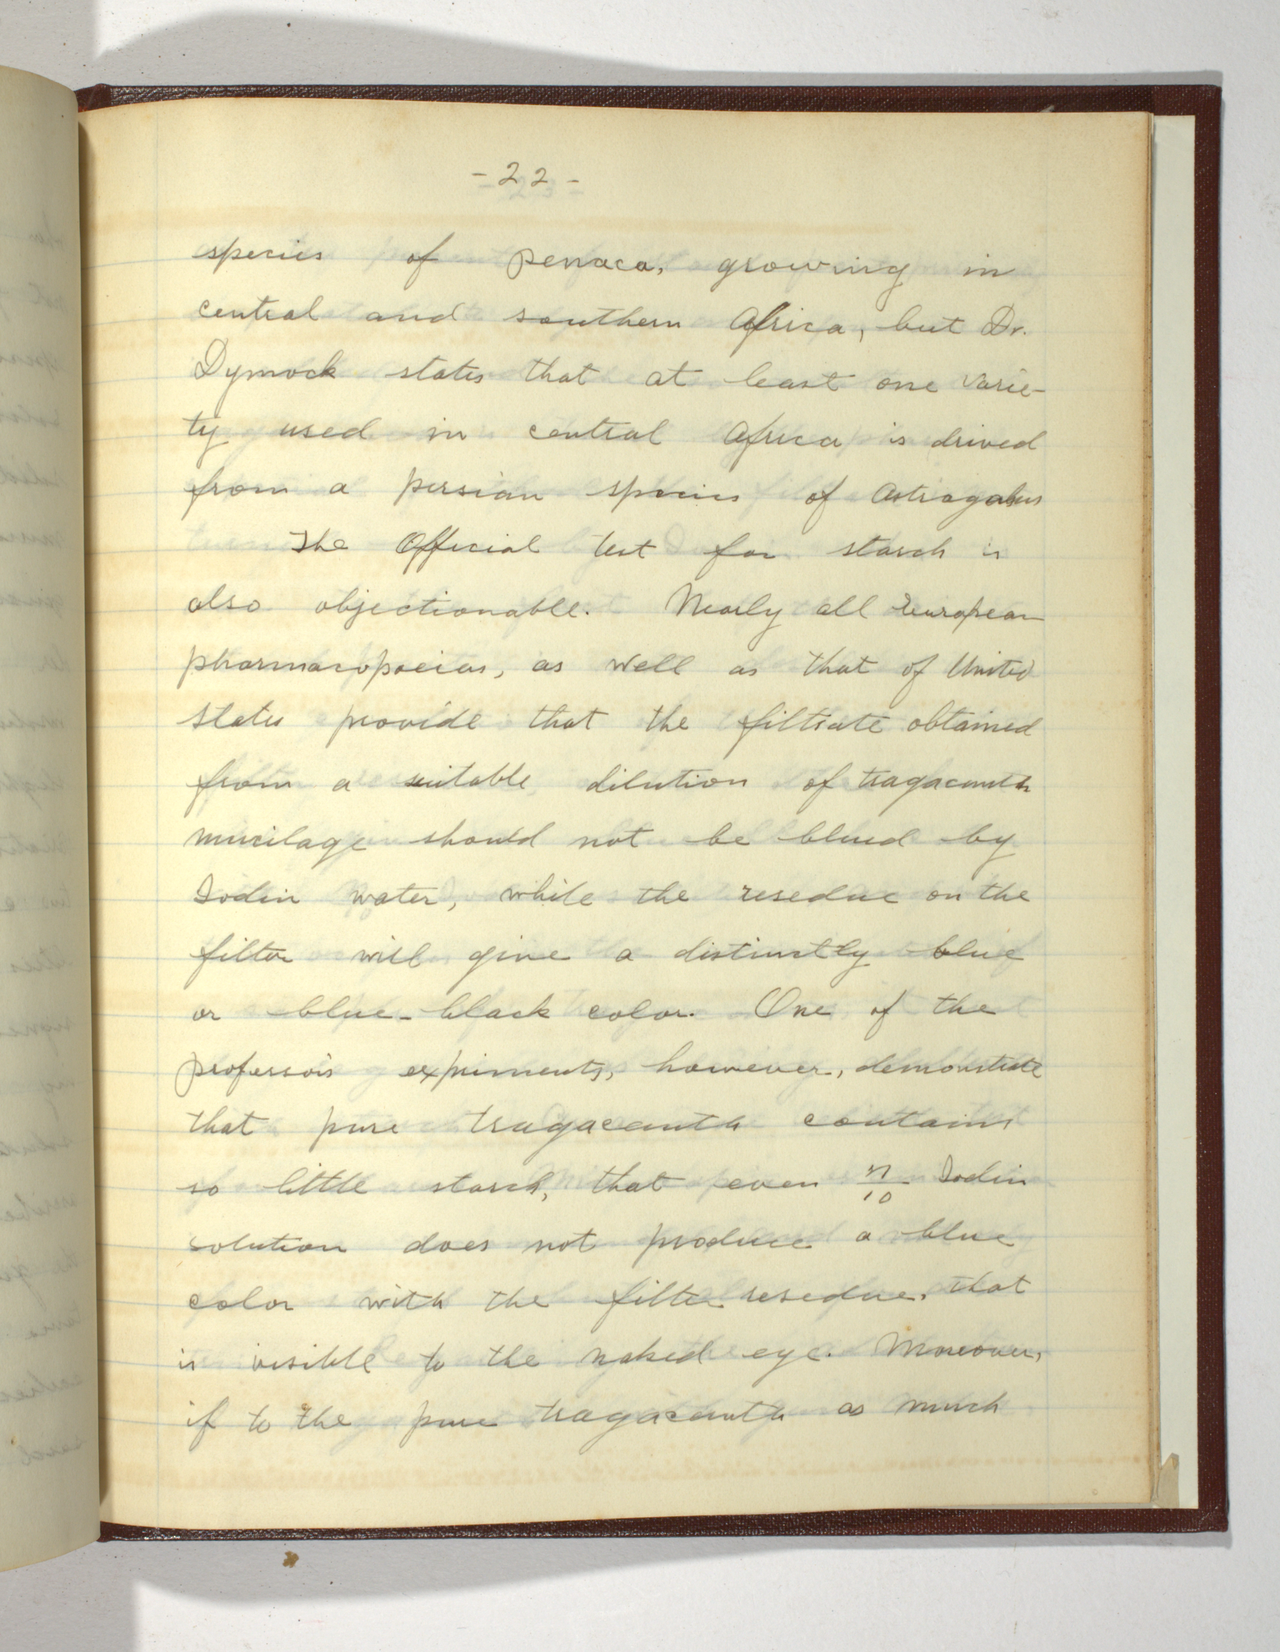 - 22 -
species of penaca, growing in
central and southern Africa, but Dr.
Dymock states that at least one varie-
ty used in central Africa is drived
from a persian species of Astragalus
The Official test for starch is
also objectionable. Nearly all European
pharmacopoeias, as well as that of United
States provide that the filtrate obtained
from a suitable dilution of tragacanth
mucilage should not be blued by
Iodin water, while the resedue on the
filter will give a distinctly blue
or blue-black color. One of the
professors expriments, however, demonstrate
that pure tragacanth contains
so little starch, that even n/10 Iodin
solution does not produce a blue
color with the filter resedue, that
is visible to the naked eye. Moreover,
if to the pure tragacanth as much